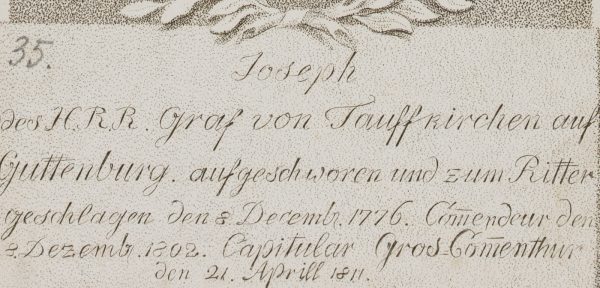 35.
Joseph
des H.R.R. Graf von Tauffkirchen auf
Guttenburg. aufgeschworen und zum Ritter
geschlagen den 8. Decemb. 1776. Com̄endeur den
8. Dezemb. 1802. Capitular Gros-Com̄enthur
den 21. Aprill 1811.